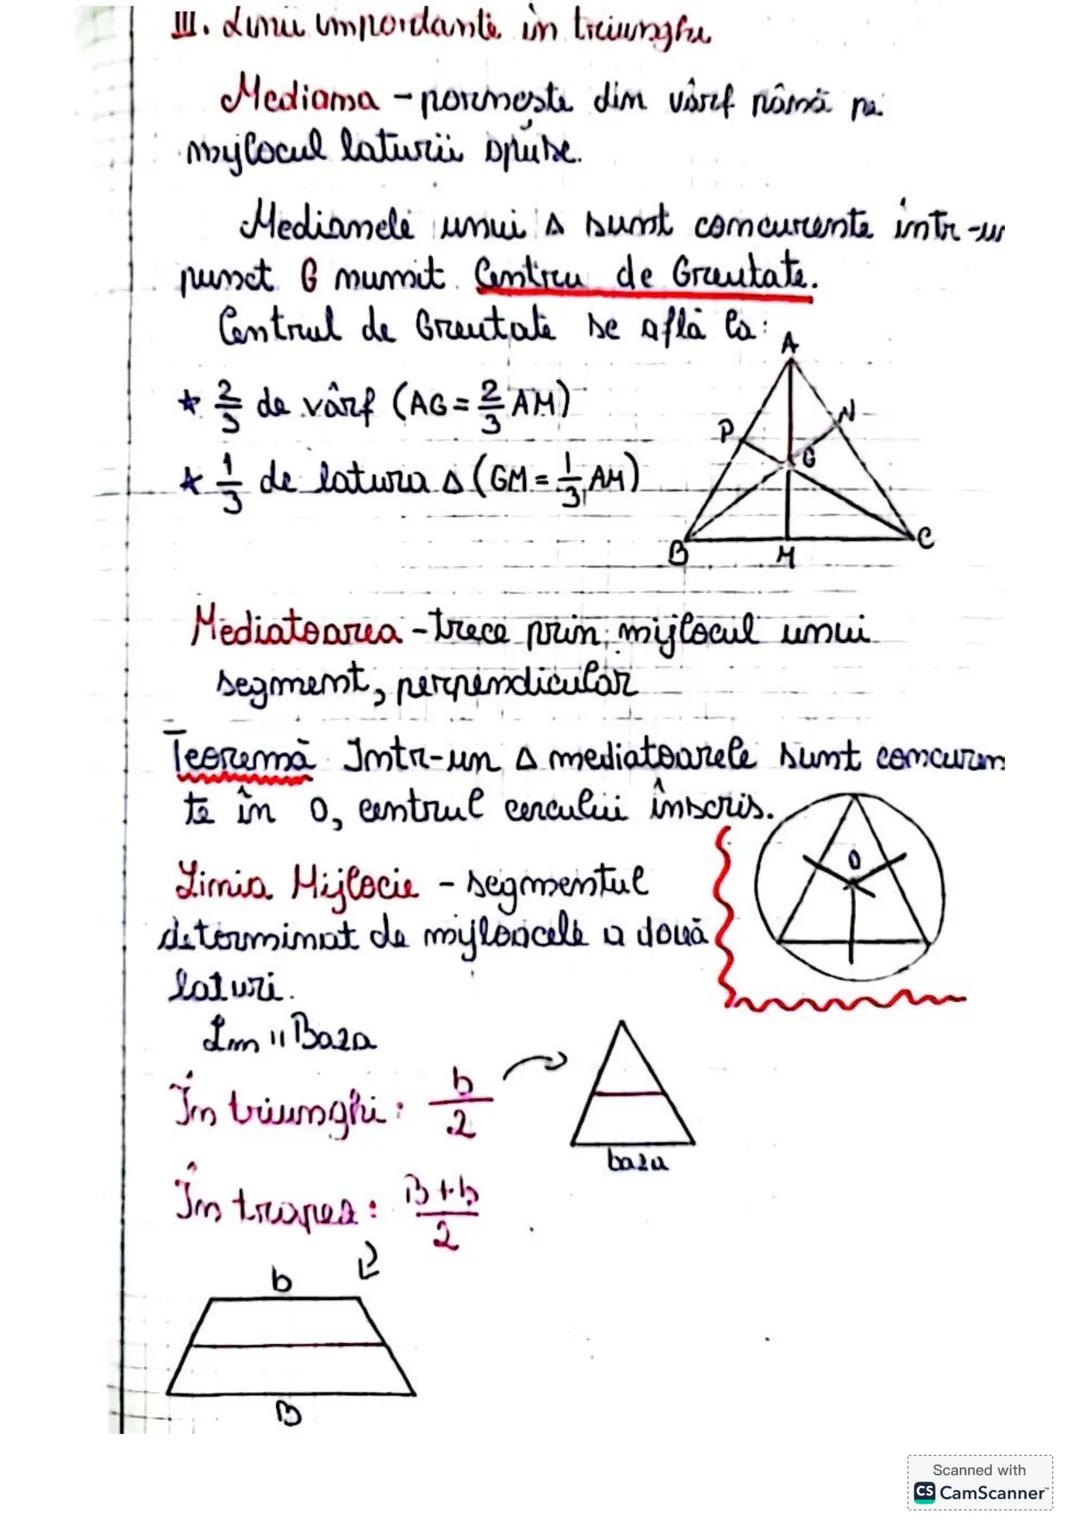 III. Linii impordante în triunghi
Mediana - pornește din vârf până pe
mijlocul laturii opuse.
Medianele unui Δ sunt concurente într-un
punct G numit Centru de Greutate.
Centrul de Greutate se află la:
* 2/3 de vârf (AG = 2/3 AM)
* 1/3 de latura Δ (GM = 1/3 AM)
A
P
N
G
B
M
C
Mediatoarea - trece prin mijlocul unui
segment, perpendicular
Teoremă Intr-un Δ mediatoarele sunt concuren
te în O, centrul cercului înscris.
O
Linia Mijlocie - segmentul
determinat de mijloacele a două
laturi.
Lm || Baza
În triunghi: b/2
baza
În trapez: B+b/2
b
B
Scanned with
CS CamScanner